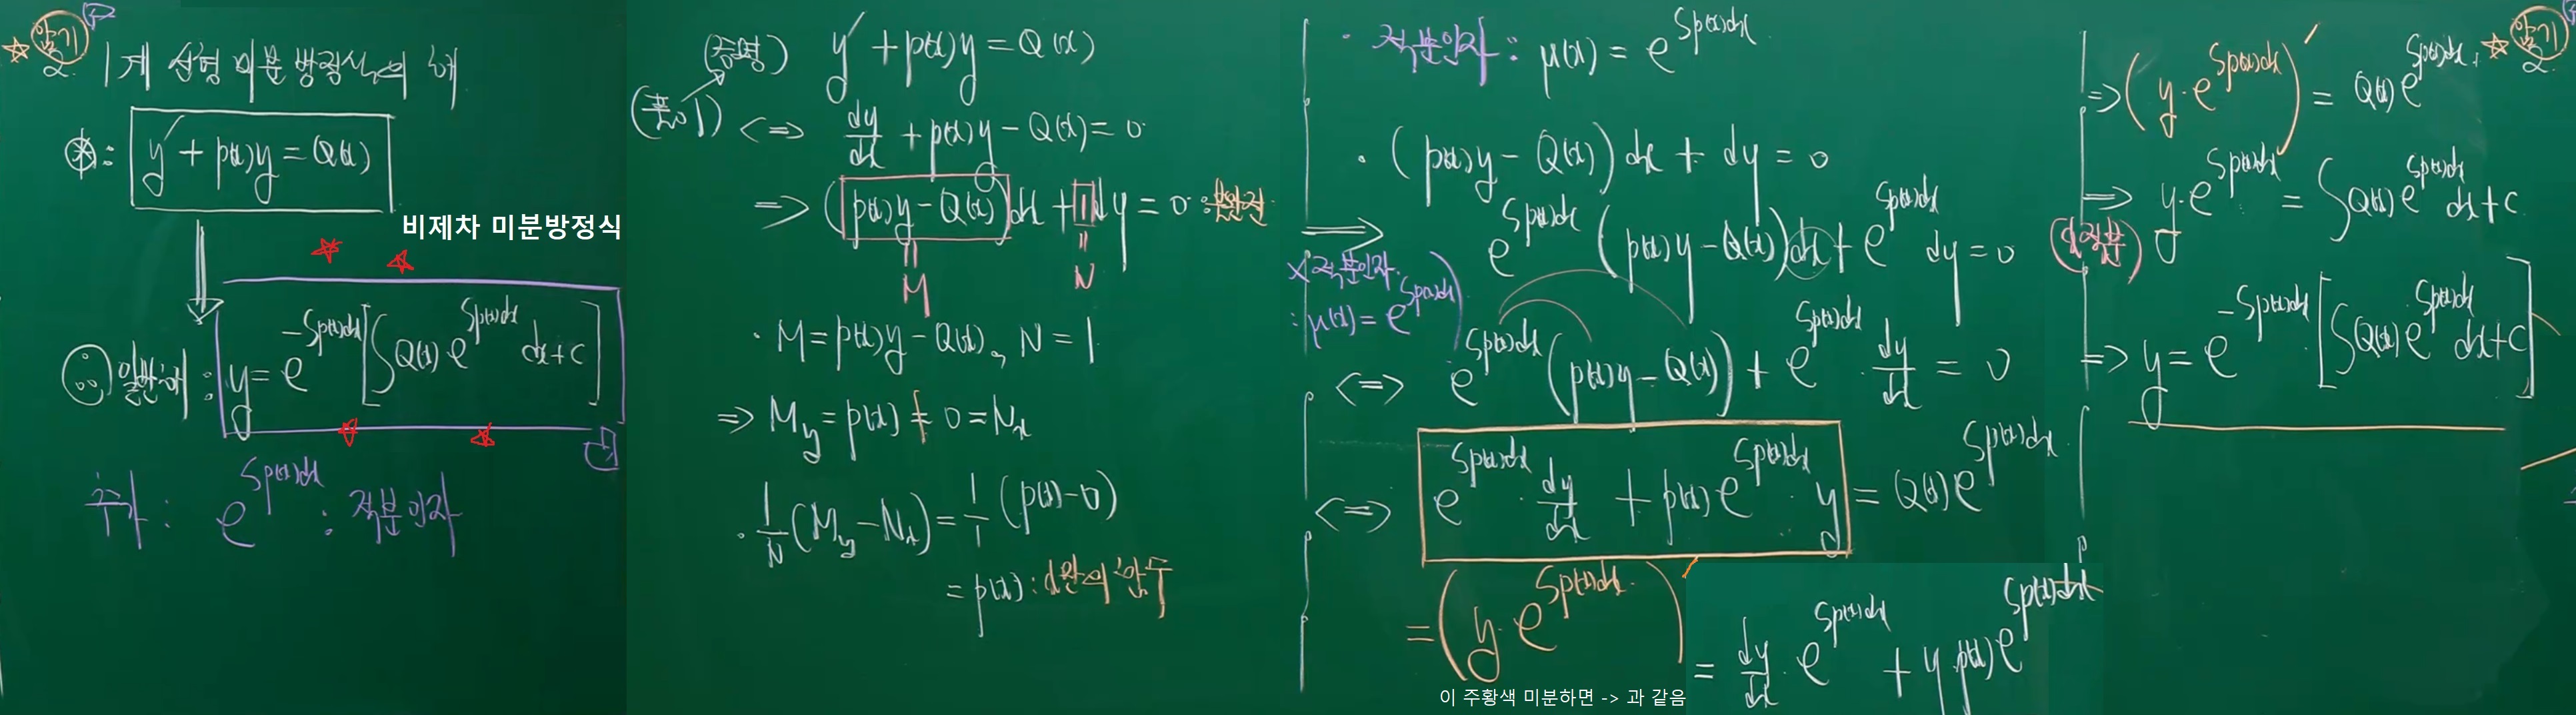 암기
☆ 2. 1계 선형 미분방정식의 해
⊛: y' + p(x)y = Q(x)
비제차 미분방정식
일반해: y = e^{-∫p(x)dx}[∫Q(x)e^{∫p(x)dx}dx+c]
추가: e^{∫p(x)dx} : 적분인자
(증명) y' + p(x)y = Q(x)
(풀이) <=> dy/dx + p(x)y - Q(x) = 0
=> (p(x)y - Q(x))dx + 1dy = 0 : 불완전
M N
· M = p(x)y - Q(x), N = 1
=> M_y = p(x) ≠ 0 = N_x
· 1/N (M_y - N_x) = 1/1 (p(x) - 0)
= p(x) : x만의 함수
· 적분인자: μ(x) = e^{∫p(x)dx}
· (p(x)y - Q(x))dx + dy = 0
=> e^{∫p(x)dx}(p(x)y - Q(x))dx + e^{∫p(x)dx}dy = 0
×적분인자
: μ(x) = e^{∫p(x)dx}
<=> e^{∫p(x)dx}(p(x)y - Q(x)) + e^{∫p(x)dx}·dy/dx = 0
<=> e^{∫p(x)dx}·dy/dx + p(x)e^{∫p(x)dx}·y = Q(x)e^{∫p(x)dx}
= (y·e^{∫p(x)dx})' = dy/dx·e^{∫p(x)dx} + y·p(x)e^{∫p(x)dx}
이 주황색 미분하면 -> 과 같음
=> (y·e^{∫p(x)dx})' = Q(x)e^{∫p(x)dx}.
=> y·e^{∫p(x)dx} = ∫Q(x)e^{∫p(x)dx}dx+c
(x적분)
=> y = e^{-∫p(x)dx}·[∫Q(x)e^{∫p(x)dx}dx+c]
암기
☆ 2.